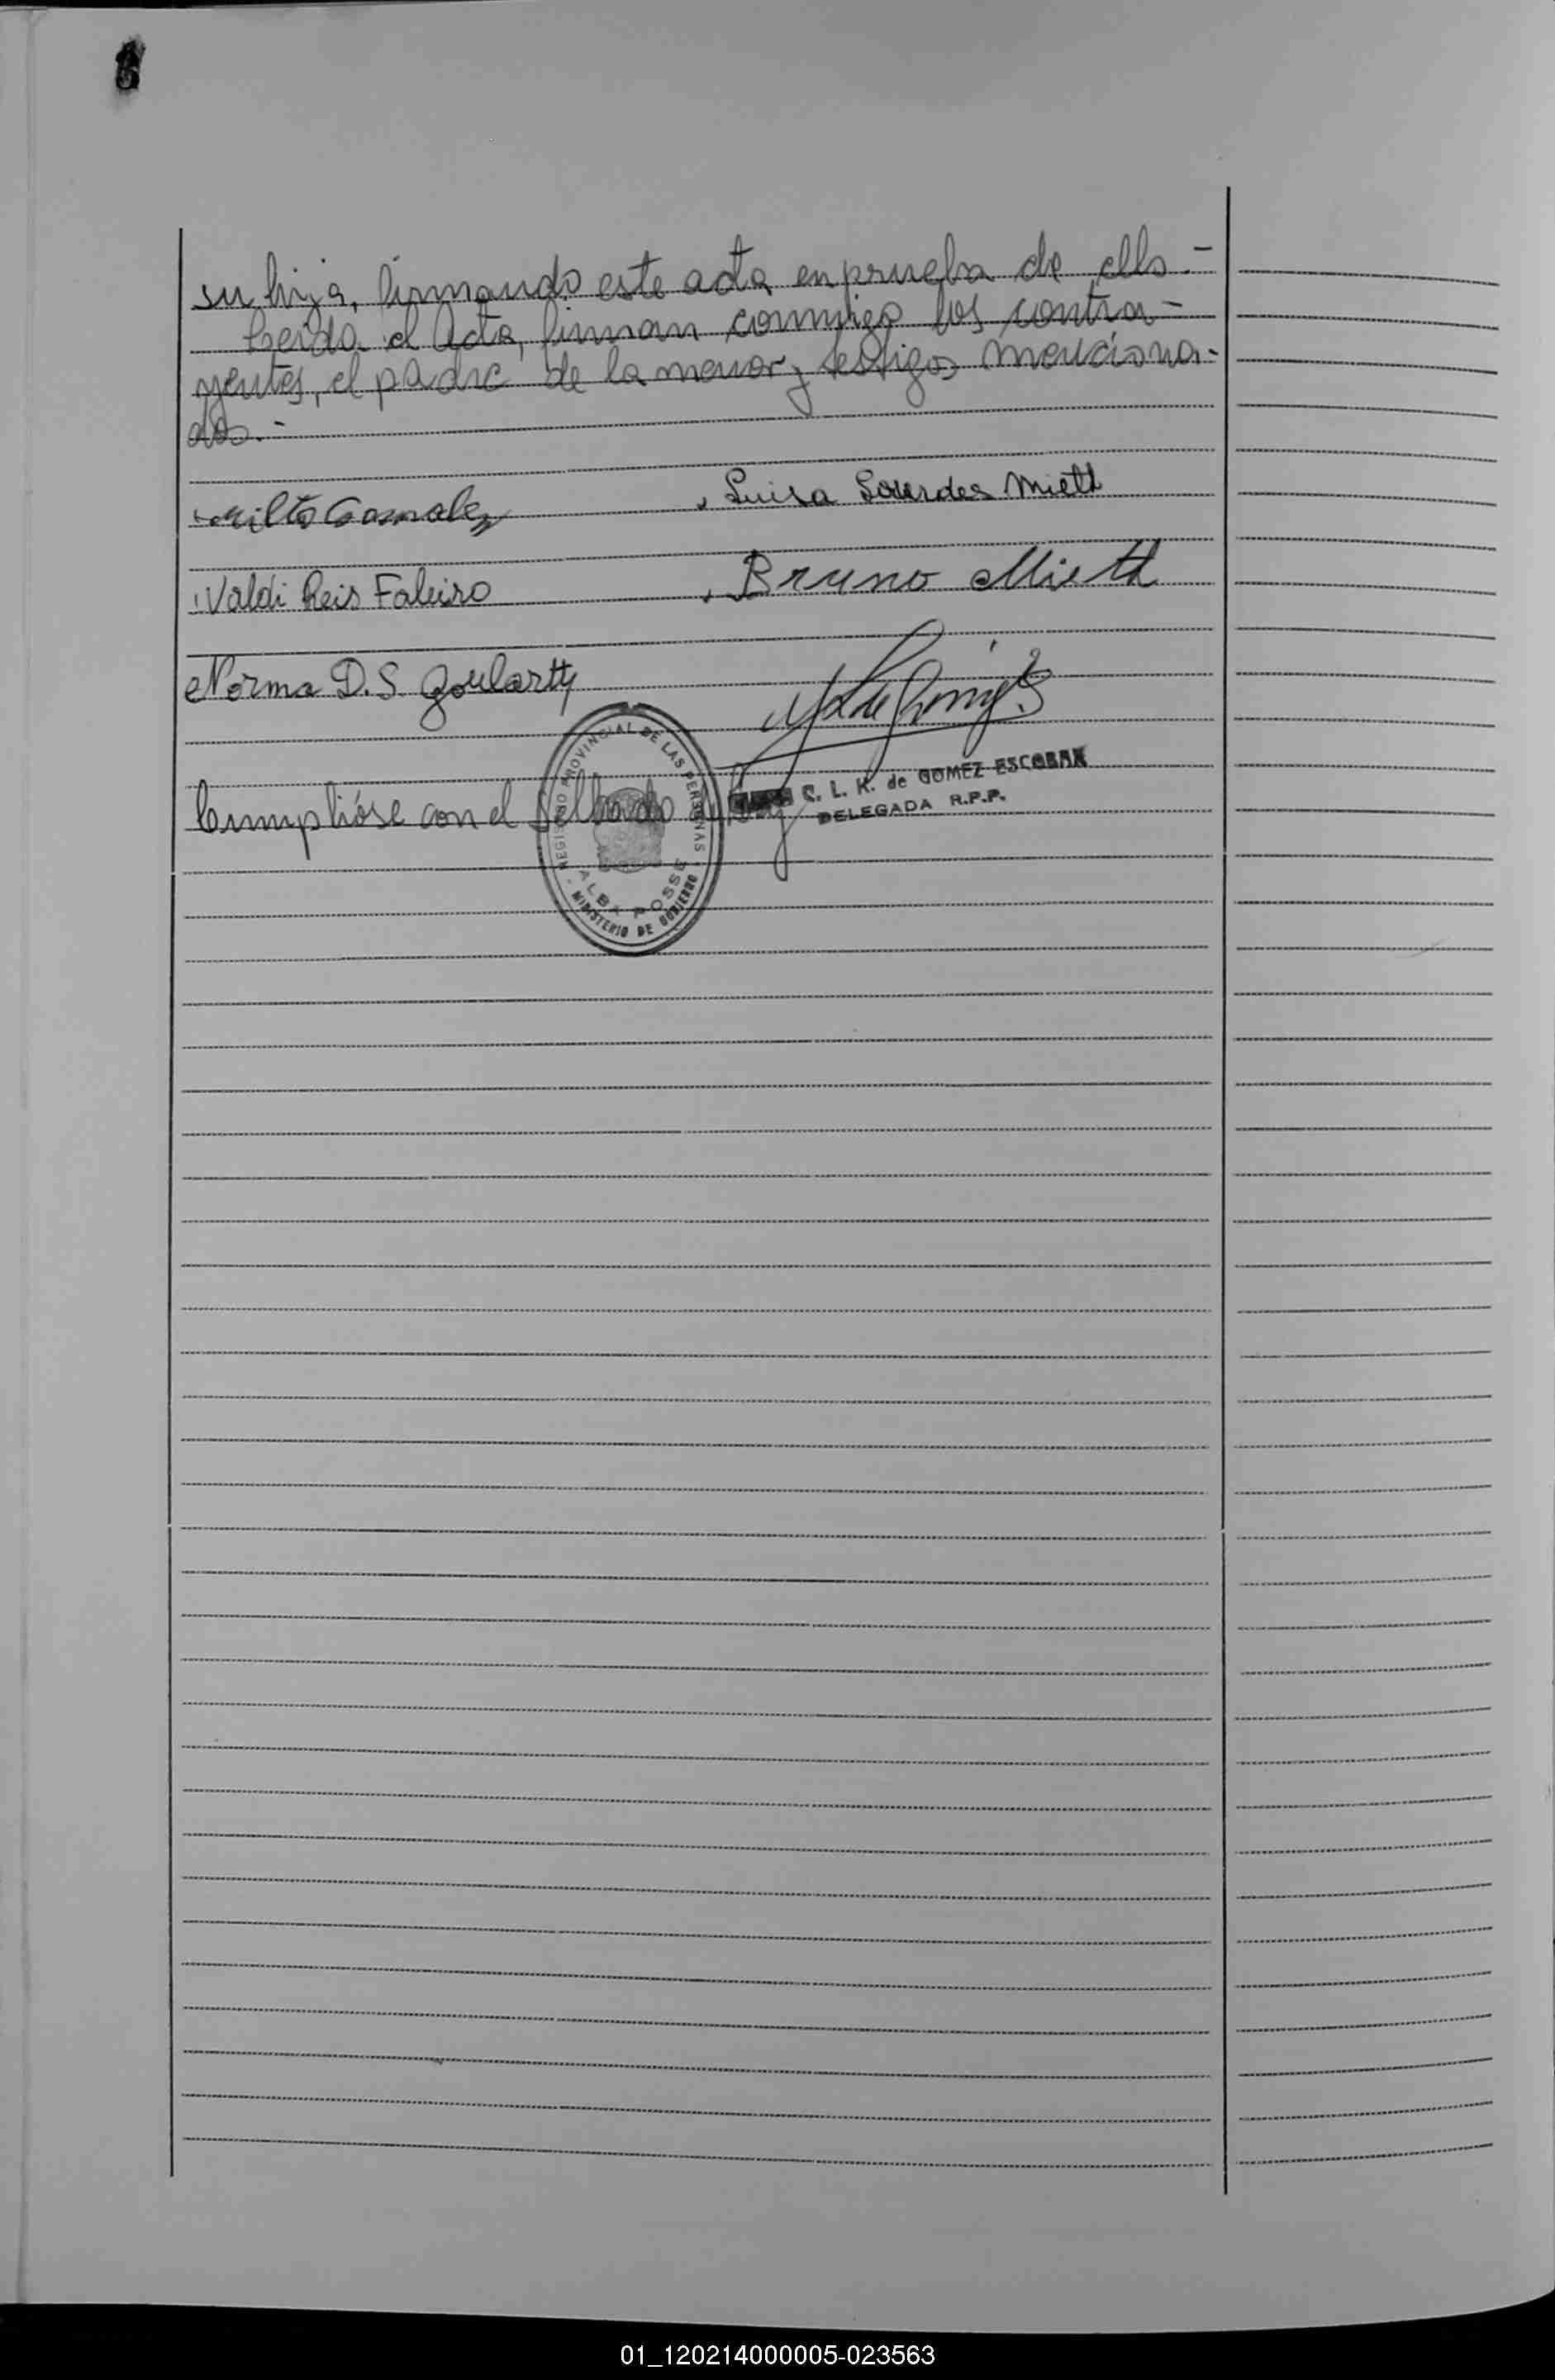 su hija, firmando este acta en prueba de ello.-
Leida el Acta, firman conmigo los contra-
yentes, el padre de la menor y testigos menciona-
dos.-
Luisa Lourdes Mieth
Gonzalez
Valdi Reis Faleiro
Bruno Mieth
Norma D.S. Goulartt
REGISTRO PROVINCIAL DE LAS PERSONAS
ALBA POSSE
MINISTERIO DE GOBIERNO
C. L. K. de GOMEZ ESCOBAR
DELEGADA R.P.P.
Cumplióse con el sellado de ley
01_120214000005-023563